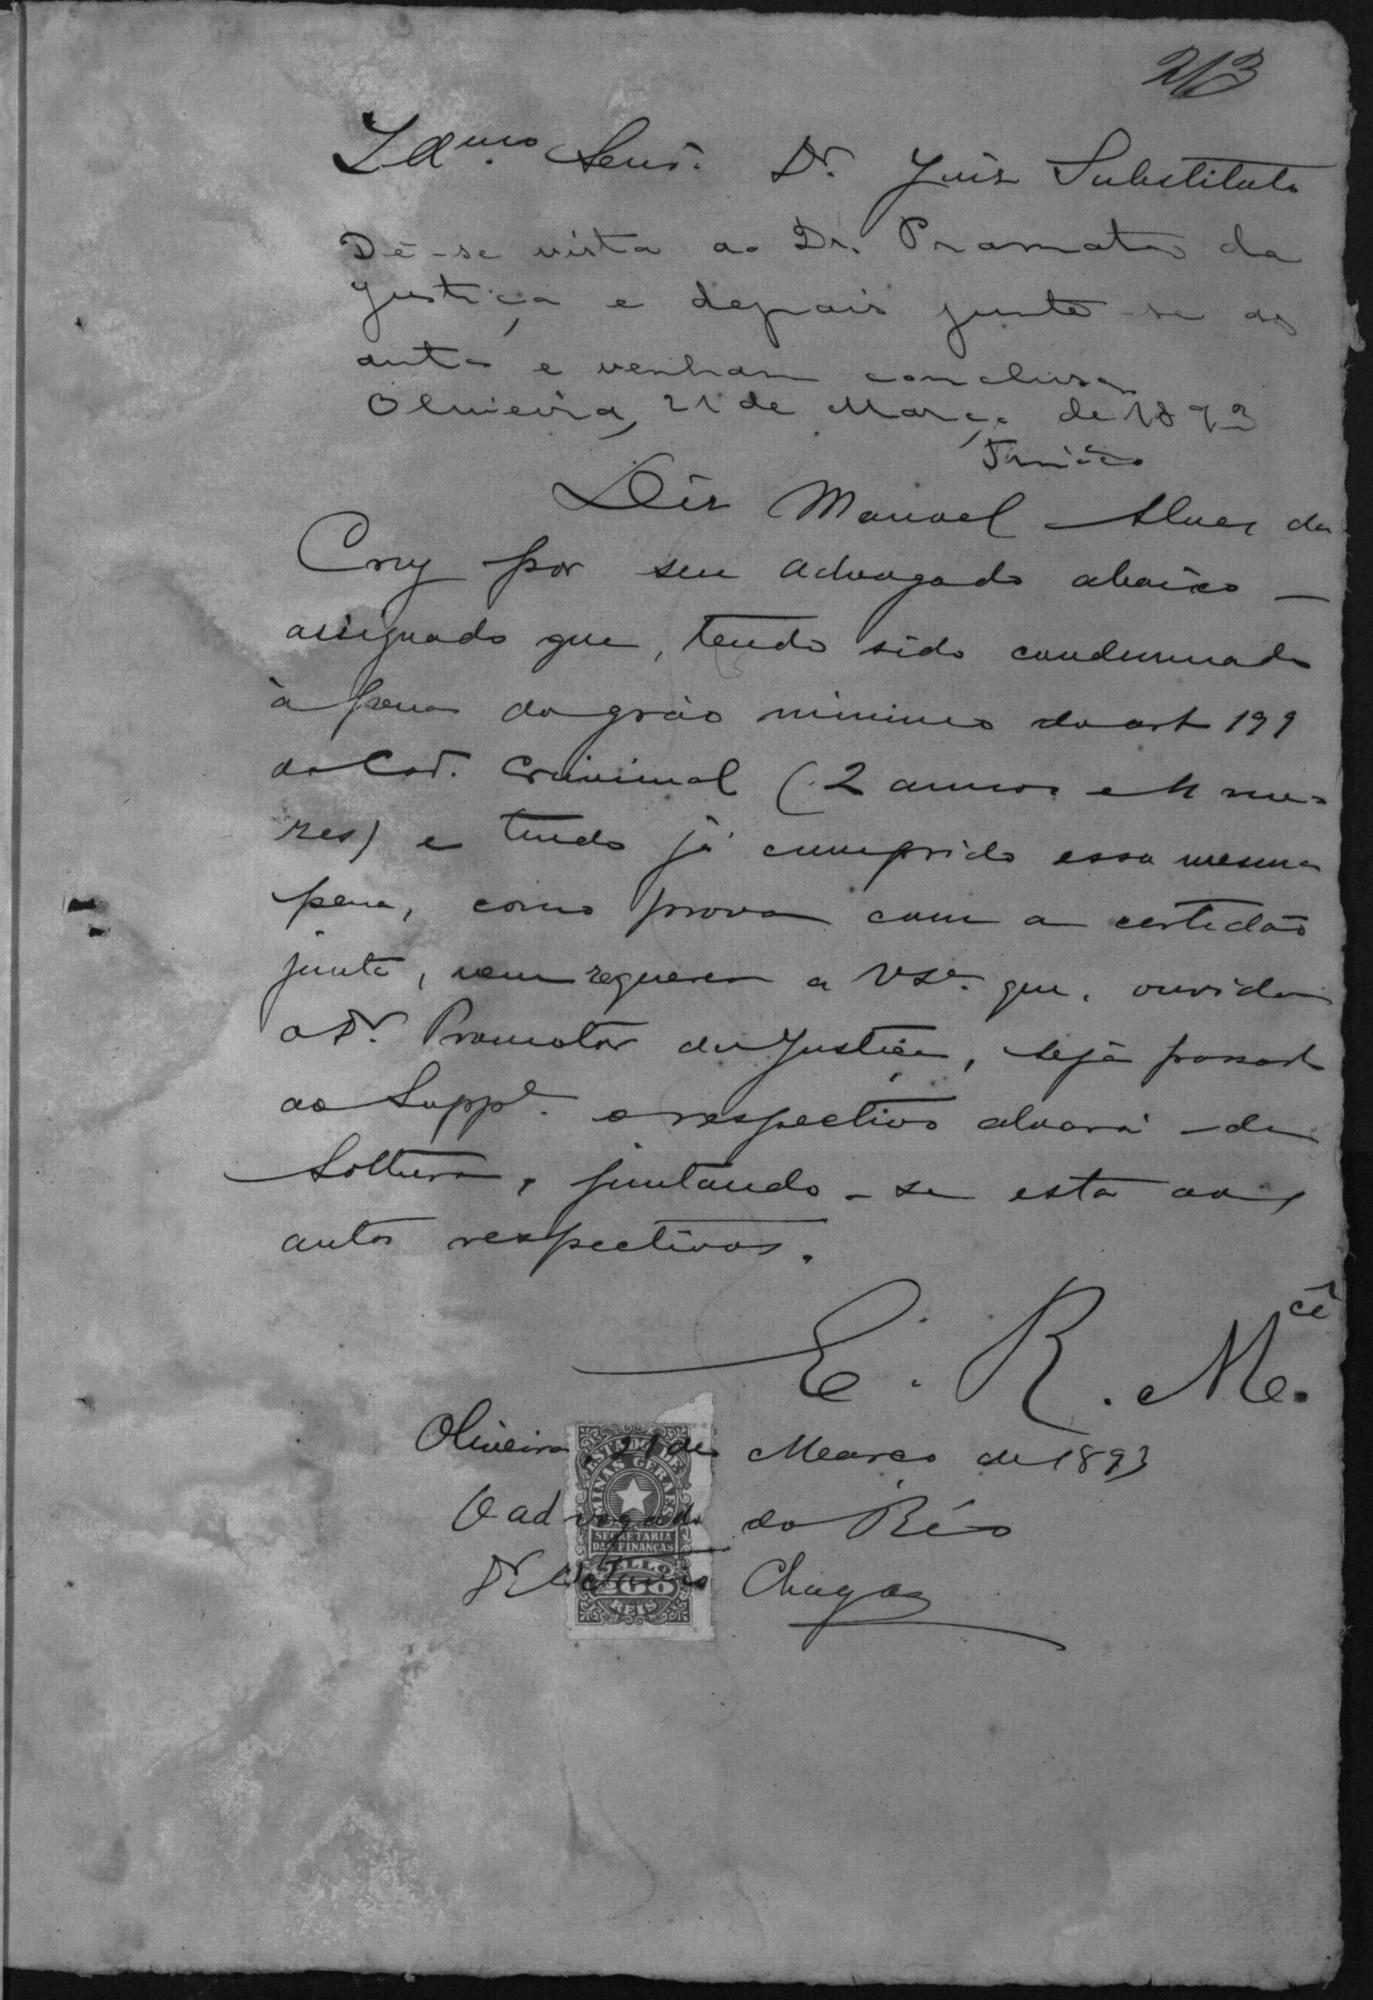 213
Senr. Dr. Juiz Substituto
Dê-se vista ao Dr. Promotor da
Justiça e depois junte-se aos
autos e venham conclusos
Oliveira, 21 de Março de 1893
Diz Manoel Alves da
Cruz por seu advogado abaixo-
assignado que, tendo sido condemnado
á pena do gráo minimo do art 199
do Cod. Criminal (2 annos e 4 me-
zes) e tendo já cumprido essa mesma
pena, como prova com a certidão
junta, vem requerer a VSa. que, ouvido
o Dr. Promotor da Justiça, seja passado
ao Suppe. o respectivo alvará de
soltura, juntando-se esta aos
autos respectivos.
E. R. Mcê.
Oliveira, 21 de Março de 1893
O advogado do Réo
Dr. Chagas
ESTADO DE
MINAS GERAES
SECRETARIA
DAS FINANÇAS
SELLO
200
REIS